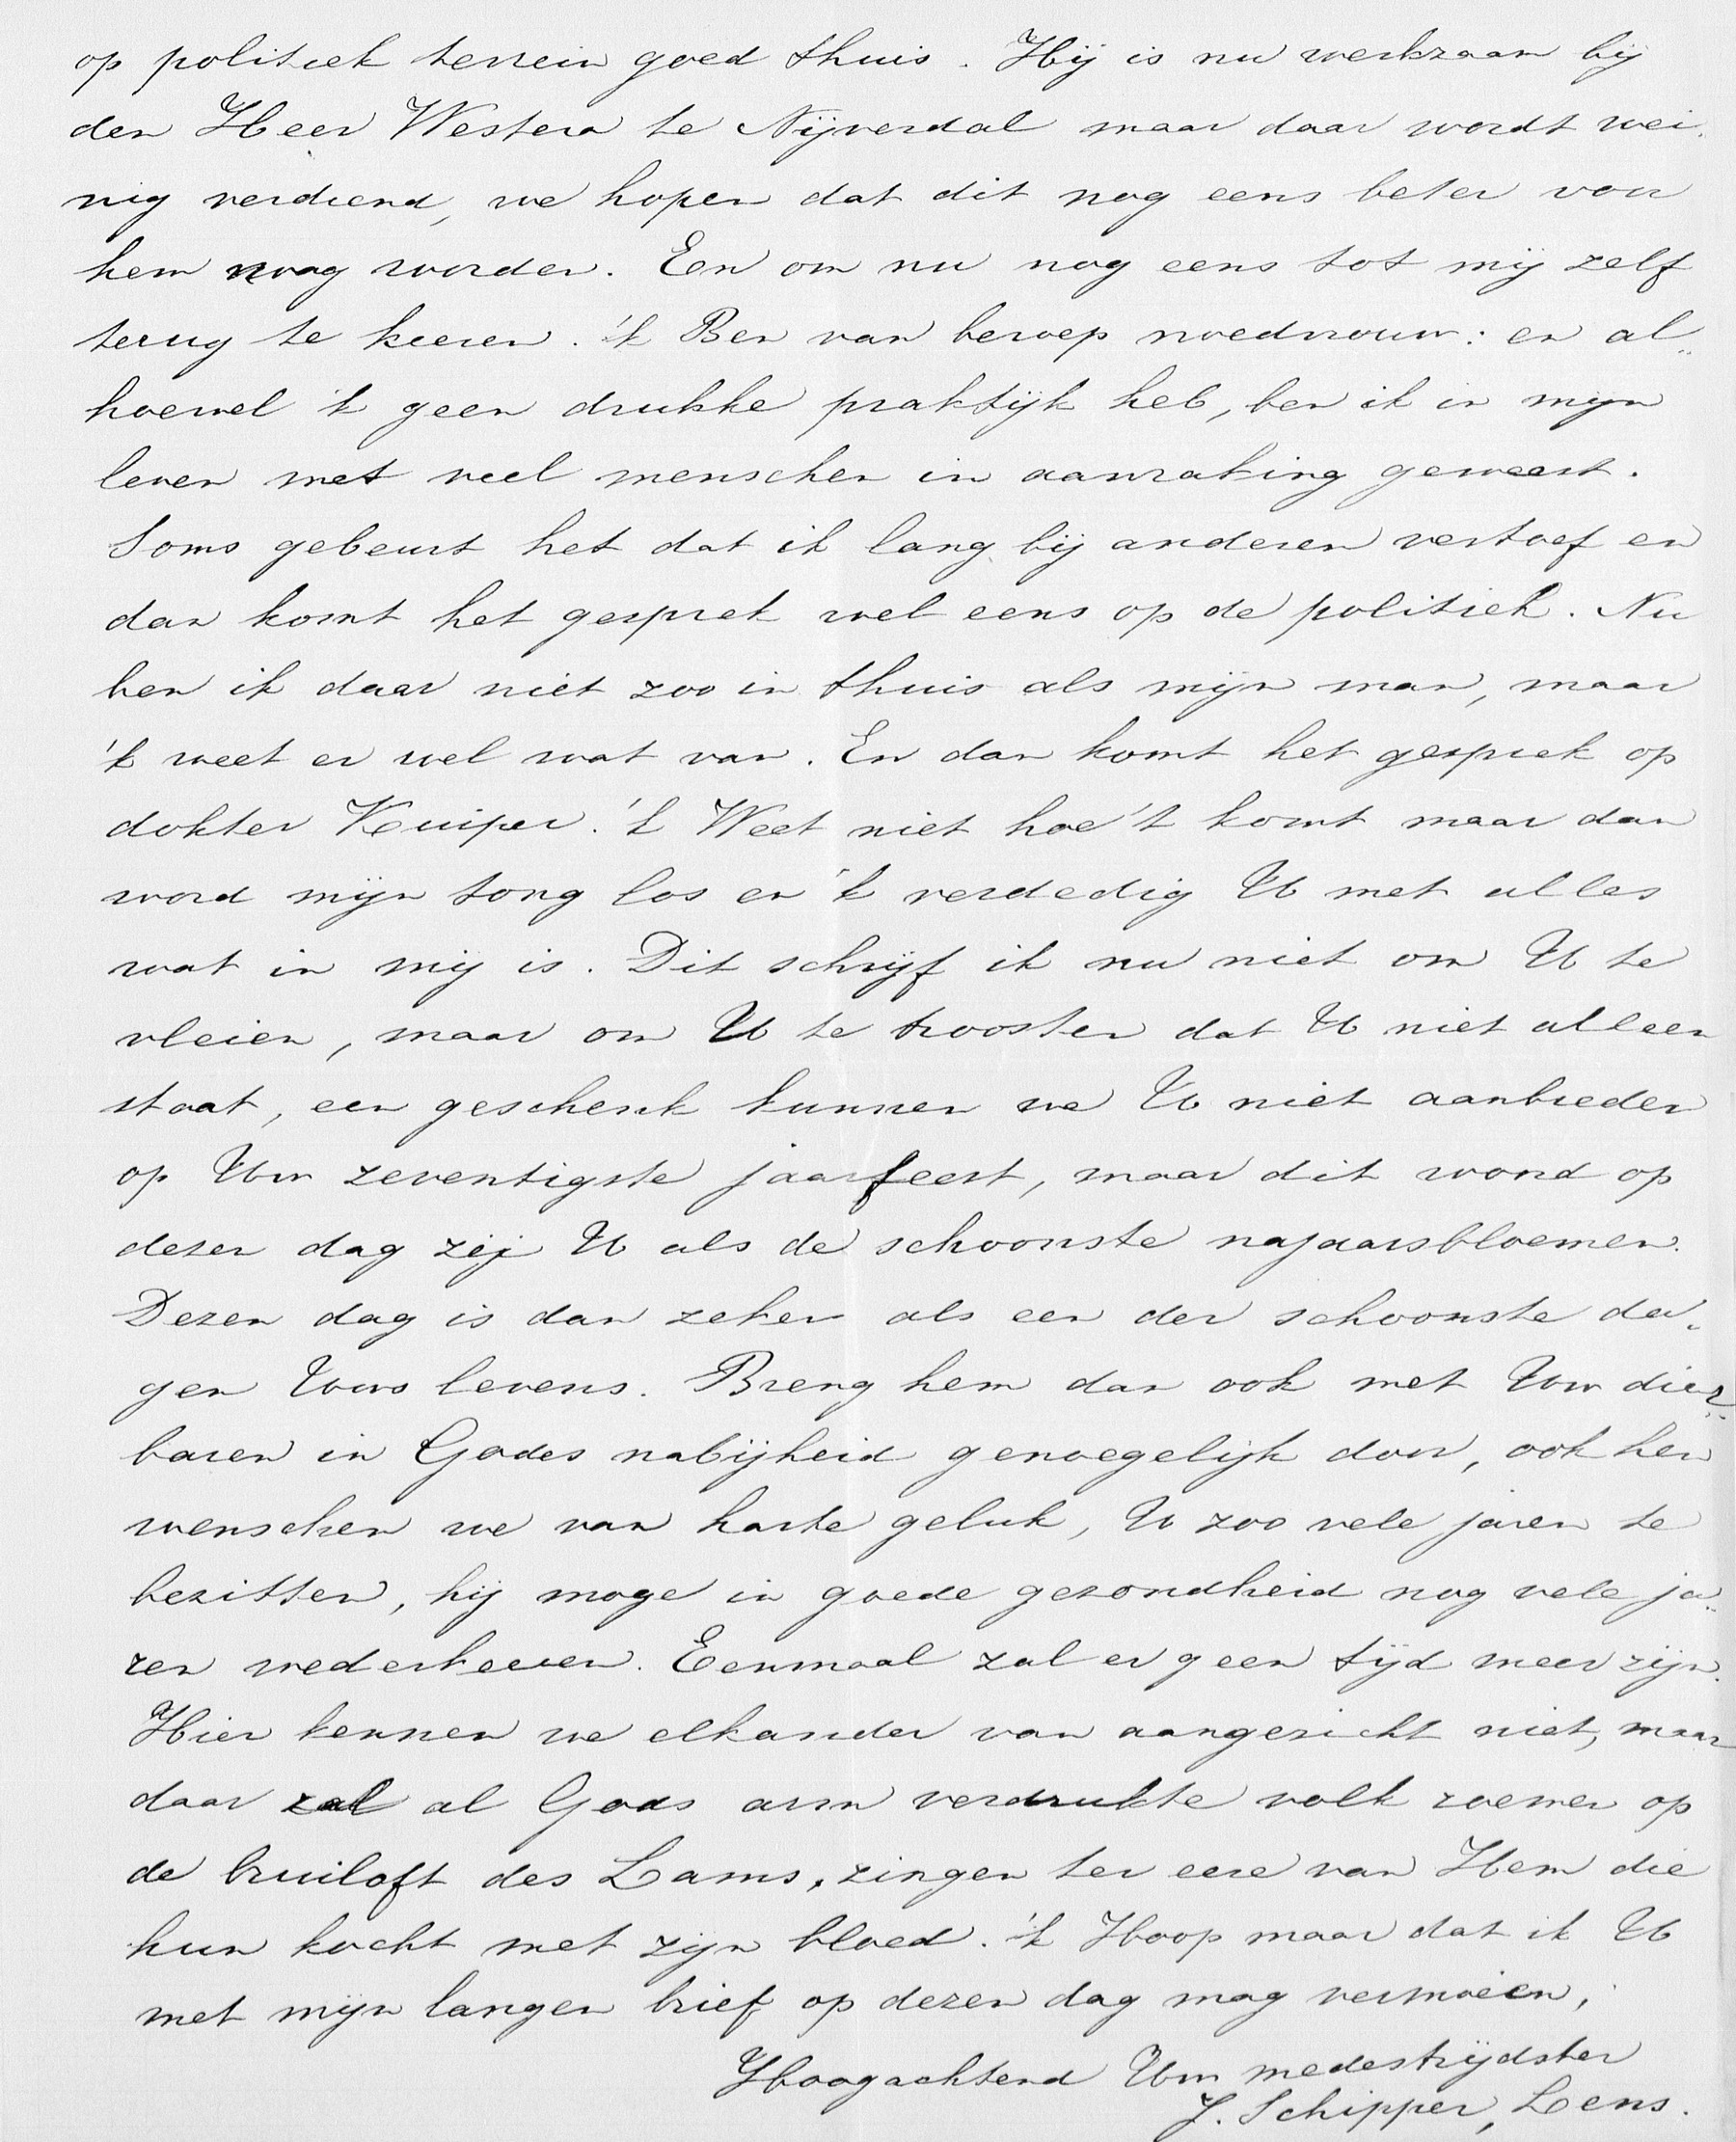 op politiek terrein goed thuis. Hij is nu werkzaam bij
den Heer Westera te Nijverdal maar daar wordt wei„
nig verdiend, we hopen dat dit nog eens beter voor
hem mag worden. En om nu nog eens tot mij zelf
terug te keeren. 'k Ben van beroep vroedvrouw: en al„
hoewel 'k geen drukke praktijk heb, ben ik in mijn
leven met veel menschen in aanraking geweest.
Soms gebeurt het dat ik lang bij anderen vertoef en
dan komt het gesprek wel eens op de politiek. Nu
ben ik daar niet zoo in thuis als mijn man, maar
'k weet er wel wat van. En dan komt het gesprek op
dokter Kuiper. 'k Weet niet hoe 't komt maar dan
word mijn tong los en 'k verdedig U met alles
wat in mij is. Dit schrijf ik nu niet om U te
vleien, maar om U te troosten dat U niet alleen
staat, een geschenk kunnen we U niet aanbieden
op Uw zeventigste jaarfeest, maar dit woord op
dezen dag zij U als de schoonste najaarsbloemen.
Dezen dag is dan zeker als een der schoonste da„
gen Uws levens. Breng hem dan ook met Uw dier„
baren in Godes nabijheid genoegelijk door, ook hen
wenschen we van harte geluk, U zoo vele jaren te
bezitten, hij moge in goede gezondheid nog vele ja„
ren wederkeeren. Eenmaal zal er geen tijd meer zijn.
Hier kennen we elkander van aangezicht niet, maar
daar zal al Gods arm verdrukte volk roemen op
de bruiloft des Lams, zingen ter eere van Hem die
hun kocht met zijn bloed. 'k Hoop maar dat ik U
met mijn langen brief op dezen dag mag vermoeien,
Hoogachtend Uw medestrijdster
J. Schipper, Lens.